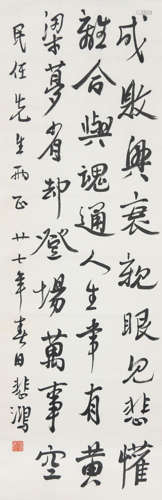 成敗興衰親眼見悲懽
離合與魂通人生事有黃
梁夢省却登場萬事空
民任先生兩正 廿七年春日悲鴻